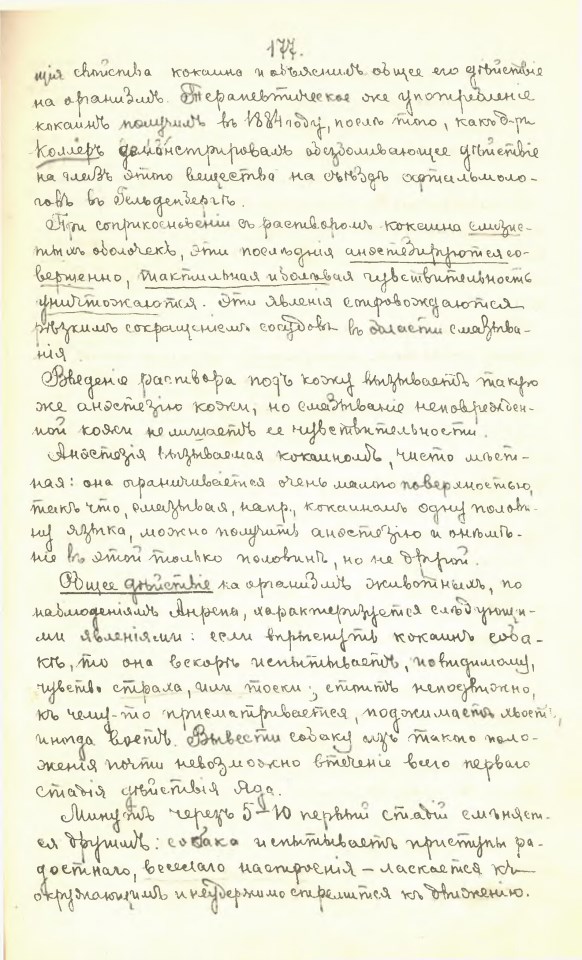 177.
щія свойства кокаина и объяснилъ общее его дѣйствіе
на организмъ. Терапевтическое же употребленіе
кокаинъ получилъ въ 1884 году, послѣ того, какъ д-ръ
Коллеръ демонстрировалъ обезболивающее дѣйствіе
на глазъ этого вещества на съѣздѣ офтальмоло-
говъ въ Гельденбергѣ.
При соприкосновеніи съ растворомъ кокаина слизис-
тыхъ оболочекъ, эти послѣднія анэстезируются со-
вершенно, тактильная и болевая чувствительность
уничтожаются. Эти явленія сопровождаются
рѣзкимъ сокращеніемъ сосудовъ въ области смазыва-
нія.
Введеніе раствора подъ кожу вызываетъ такую
же анэстезію кожи, но смазываніе неповрежден-
ной кожи не лишаетъ ее чувствительности.
Анэстезія вызываемая кокаиномъ, чисто мѣст-
ная: она ограничивается очень малою поверхностью,
такъ что, смазывая, напр., кокаиномъ одну полови-
ну языка, можно получить анэстезію и онѣмѣ-
ніе въ этой только половинѣ, но не другой.
Общее дѣйствіе на организмъ животныхъ, по
наблюденіямъ Анрепа, характеризуется слѣдующи-
ми явленіями: если впрыснуть кокаинъ соба-
кѣ, то она вскорѣ испытываетъ, повидимому,
чувство страха, или тоски; стоитъ неподвижно,
къ чему-то присматривается, поджимаетъ хвостъ,
иногда воетъ. Вывести собаку изъ такого поло-
женія почти невозможно втеченіе всего перваго
стадія дѣйствія яда.
Минутъ черезъ 5-10 первый стадій смѣняет-
ся другимъ: собака испытываетъ приступы ра-
достнаго, веселаго настроенія – ласкается къ
окружающимъ и неудержимо стремится къ движенію.